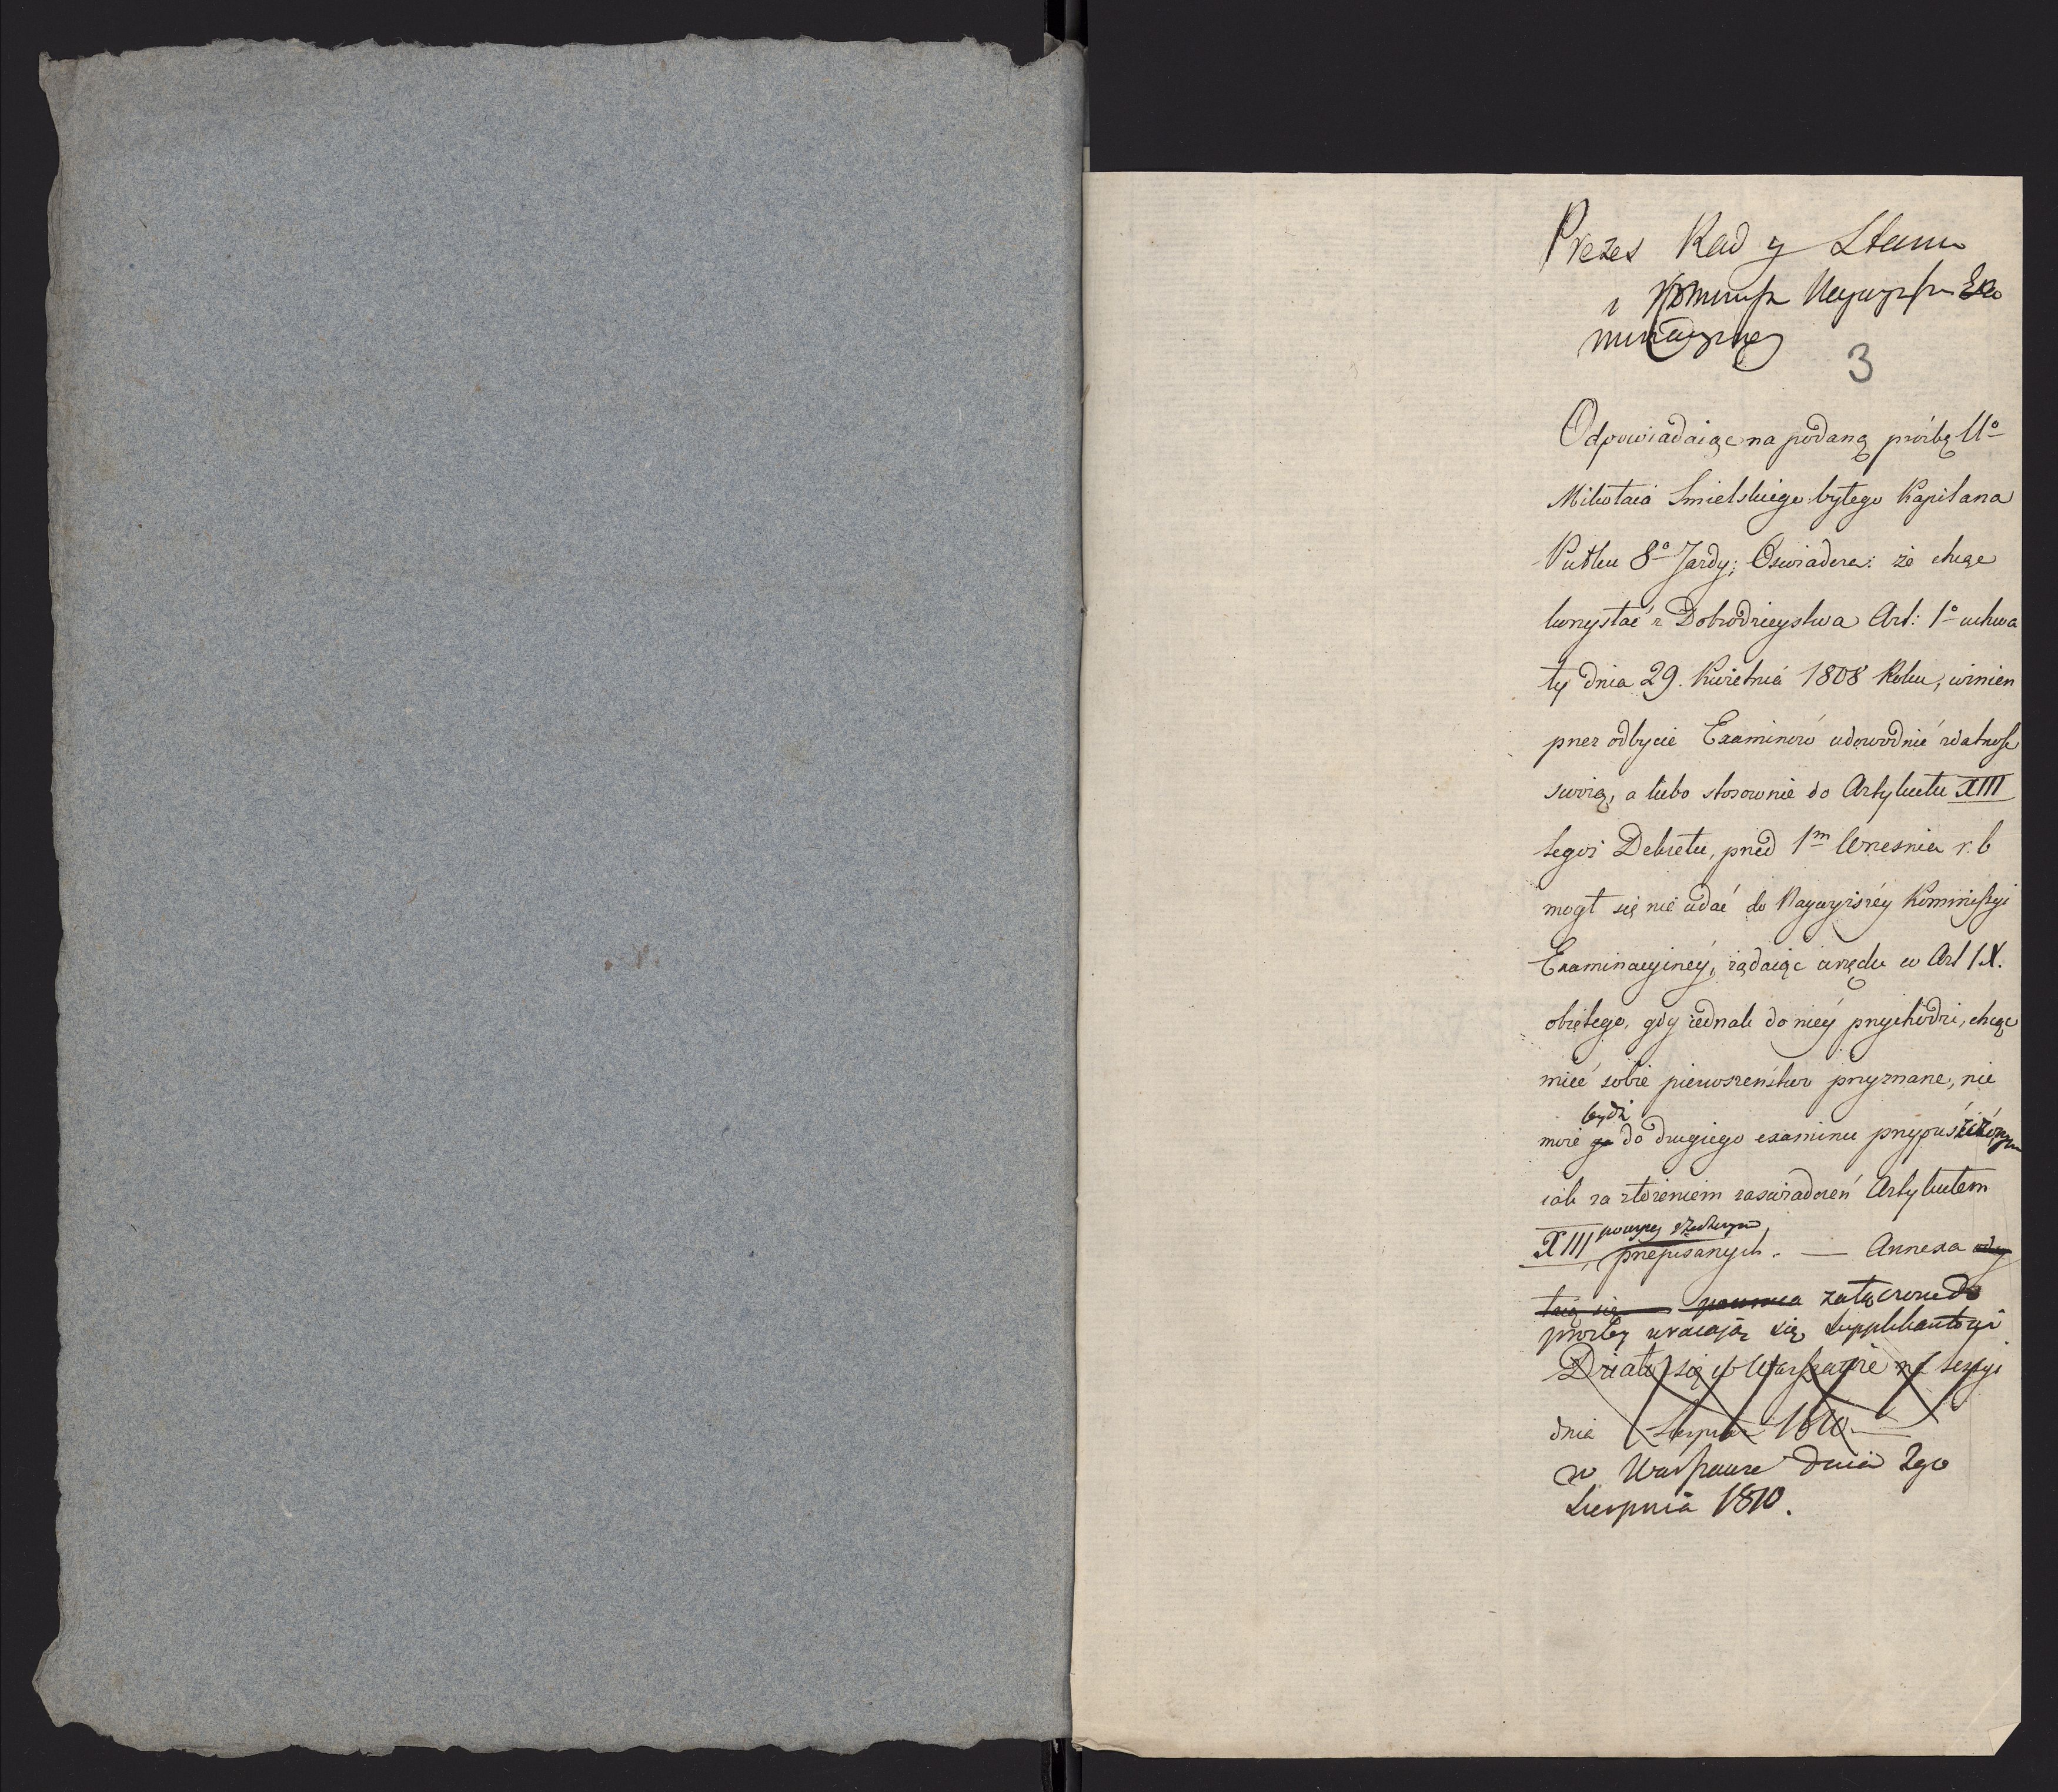 Prezes Rady Stanu
i Kommissyi Naywyższey Exa
minacyiney
3
Odpowiadaiąc na podaną prózbę Uo
Mikołaia Smielskiego byłego Kapitana
Pułku 8o Jazdy; Oswiadcza: że chcąc
korzystać z Dobrodzieystwa Art: 1o uchwa
ły dnia 29. Kwietnia 1808 Roku, winien
przez odbycie Examinów udowodnić zdatność
swoią, a lubo stosownie do Artykułu XIII
tegoż Dekretu, przed 1m Wrzesnia r. b
mogł się nie udać do Naywyższéy Kommissyi
Examinacyinéy, żądaiąc urzędu w Art IX.
obiętego, gdy iednak do niéy przychodzi, chcąc
mieć sobie pierwszeństwo przyznane, nie
bydź
może go do drugiego examinu przypuszczonym
iak za złożeniem zaświadczeń Artykułem
powyżey rzeczonym
XIII przepisanych. — Annexa
taią się załączone do
prozby wracaią się Supplikantowi
Działo się w Warszawie na Sessyi
dnia Sierpnia 1810
w Warszawie dnia 2go
Sierpnia 1810.